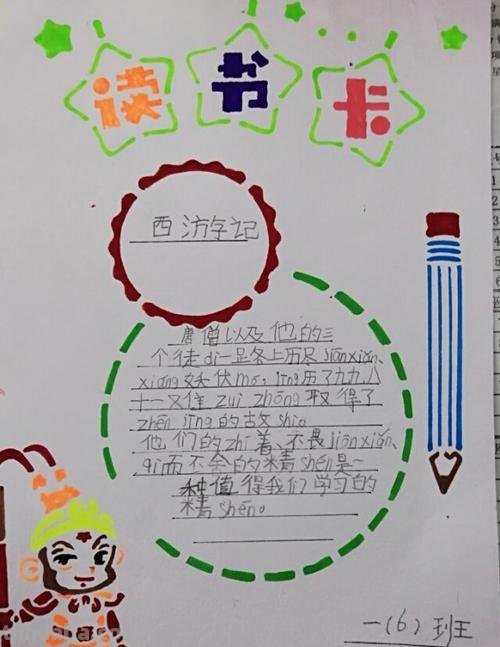 读书卡
西游字记
唐僧以及他的三
个徒di一足各上历尽jiānxiǎn、
xiáng妖伏mó，jīng历了九九八
十一又隹zuì zhōng取得了
zhēn jīng的故shio
他们的zhí着、不畏jiānxiǎn、
qì而不舍的精shén是一
种值得我们学习的
精shéno
一(6)班